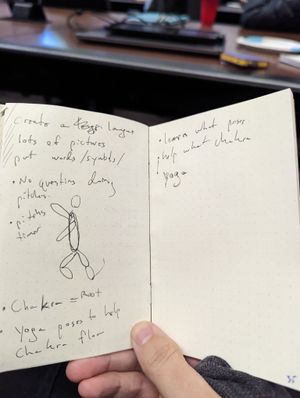 Create a langue
lots of pictures
put words /symbols/
• No questions during
pitches.
• pitches
timer
• Chakra = Root
• Yoga poses to help
Chakra flow
• learn what poses
• help what chakra
• Yoga